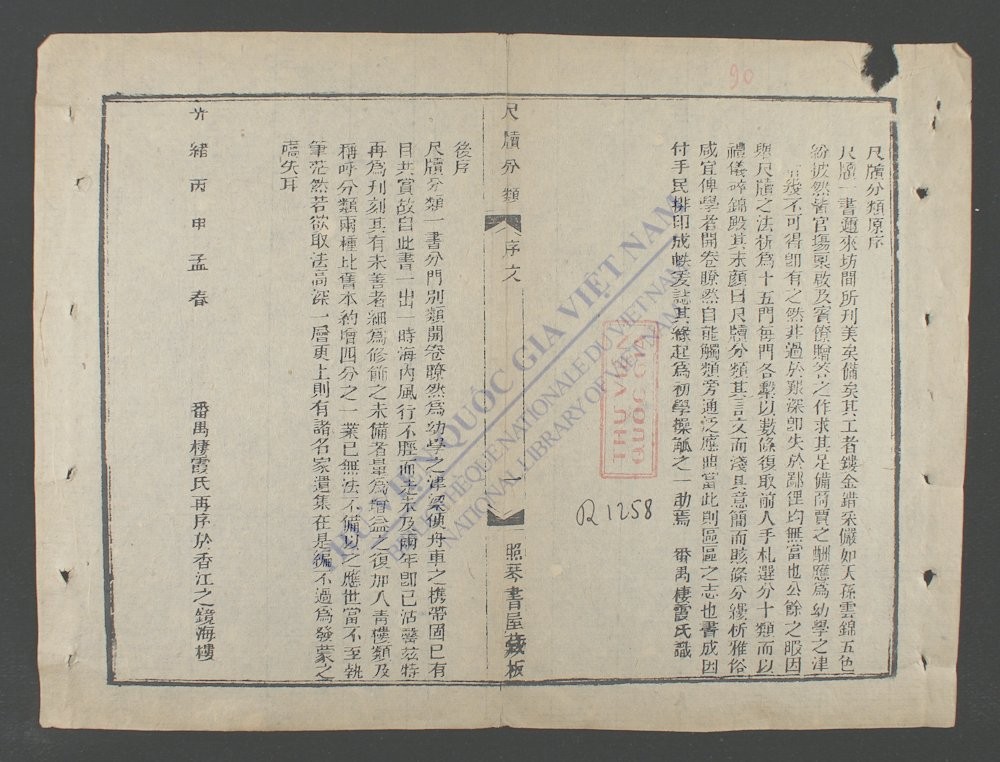 90
尺牘分類原序
尺牘一書邇來坊間所刊美矣備矣其工者鏤金錯采儼如天孫雲錦五色
紛披然皆官塲稟啟及賓僚贈答之作求其足備商賈之酬應為幼學之津
筏不可得卽有之然非過於艱深卽失於鄙俚均無當也公餘之暇因
與尺牘之法析為十五門每門各繫以数條復取前人手札選分十類而以
禮儀碎錦殿其末顏曰尺牘分類其言文而淺其意簡而賅條分縷析雅俗
咸宜俾學者開卷瞭然自能觸類旁通泛應曲當此則區區之志也書成因
付手民排印成帙爰誌其緣起為初學操觚之一助焉 番禺棲霞氏識
尺牘分類
序文
一
照琴書屋藏板
後序
尺牘分類一書分門別類開卷瞭然為幼學之津梁便舟車之携帶固已有
目共賞故自此書一出一時海內風行不脛而走未及兩年卽已沽罄茲特
再為刊刻其有未善者細為修飾之未備者畧為增益之復加入青樓類及
稱呼分類兩種比舊本約增四分之一業已無法不備以之應世當不至執
筆茫然若欲取法高深一層更上則有諸名家遺集在是編不過為發蒙之
嚆矢耳
光緒丙申孟春 番禺棲霞氏再序於香江之鏡海樓
THƯ VIỆN QUỐC GIA VIỆT NAM
BIBLIOTHÈQUE NATIONALE DU VIETNAM
NATIONAL LIBRARY OF VIETNAM
THƯ VIỆN
QUỐC GIA
R 1258